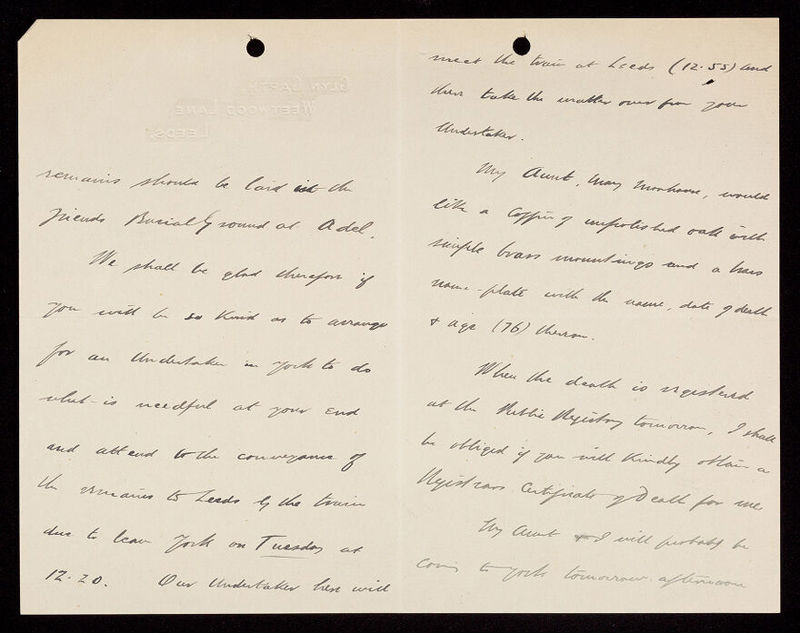 GLYN GARTH,
WEETWOOD LANE,
LEEDS.
remains should be laid in the
Friends Burial Ground at Adel.
We shall be glad therefore if
you will be so kind as to arrange
for an Undertaker in York to do
what is needful at your end
and attend to the conveyance of
the remains to Leeds by the train
due to leave York on Tuesday at
12.20. Our Undertaker here will
meet the train at Leeds (12.55) and
there take the matter over from your
Undertaker.
My Aunt, Mary, would
like a coffin of unpolished oak with
simple brass mountings and a brass
name-plate with the name, date of death
& age (76) thereon.
When the death is registered
at the Public Registry tomorrow, I shall
be obliged if you will kindly obtain a
Registrars Certificate of Death for me.
My Aunt & I will probably be
coming to York tomorrow afternoon